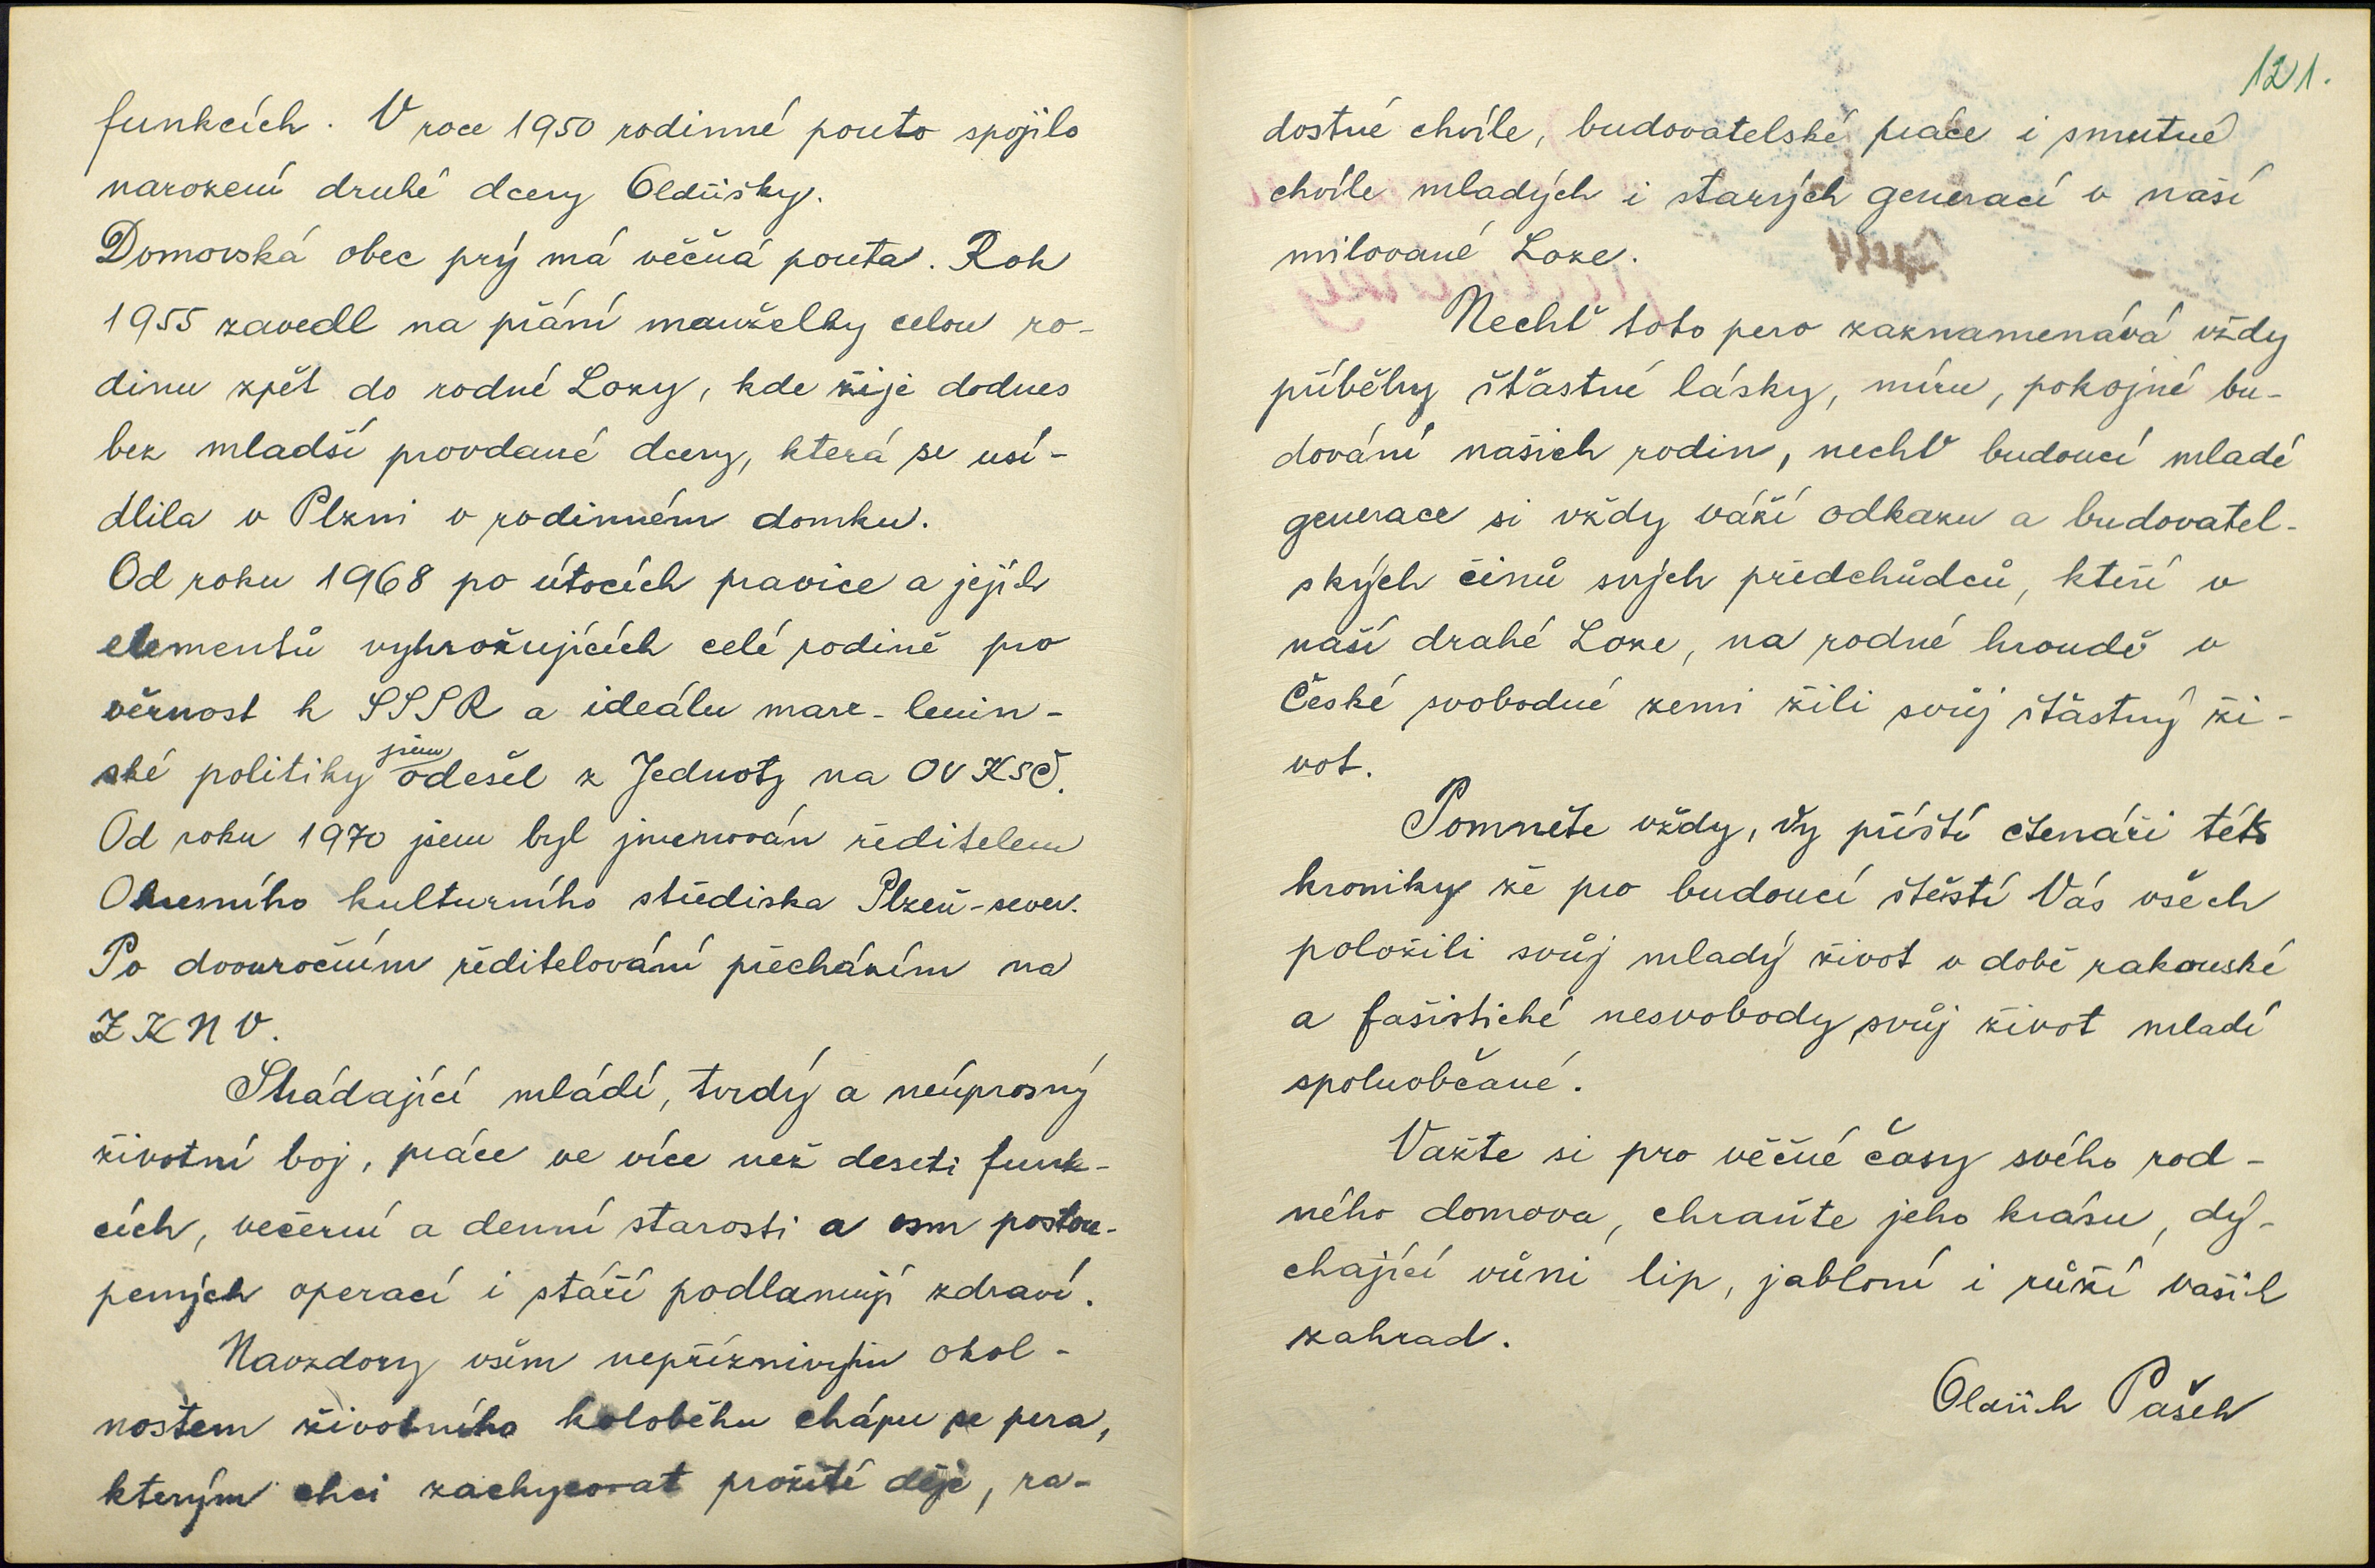 funkcích. V roce 1950 rodinné pouto spojilo
narození druhé dcery Oldřišky.
Domovská obec prý má věčná pouta. Rok
1955 zavedl na přání manželky celou ro-
dinu zpět do rodné Lozy, kde žije dodnes
bez mladší provdané dcery, která se usí-
dlila v Plzni v rodinném domku.
Od roku 1968 po útocích pravice a jejích
elementů vyhrožujících celé rodině pro
věrnost k SSSR a ideálu marx-lenin-
ské politiky jsem odešel z Jednoty na OV KSČ.
Od roku 1970 jsem byl jmenován ředitelem
Okresního kulturního střediska Plzeň-sever.
Po dvouročním ředitelování přecházím na
ZKNV.
Strádající mládí, tvrdý a neúprosný
životní boj, práce ve více než deseti funk-
cích, večerní a denní starosti a osm postou-
pených operací i stáří podlamují zdraví.
Navzdory všem nepříznivým okol-
nostem životního koloběhu chápu se pera,
kterým chci zachycovat prožité děje, ra-
121.
dostné chvíle, budovatelské práce i smutné
chvíle mladých i starých generací v naší
milované Loze.
Nechť toto pero zaznamenává vždy
příběhy šťastné lásky, míru, pokojné bu-
dování našich rodin, nechť budoucí mladé
generace si vždy váží odkazu a budovatel-
ských činů svých předchůdců, kteří v
naší drahé Loze, na rodné hroudě v
České svobodné zemi žili svůj šťastný ži-
vot.
Pomněte vždy, Vy příští čtenáři této
kroniky že pro budoucí štěstí Vás všech
položili svůj mladý život v době rakouské
a fašistické nesvobody svůj život mladí
spoluobčané.
Važte si pro věčné časy svého rod-
ného domova, chraňte jeho krásu, dý-
chající vůni lip, jabloní i růží vašich
zahrad.
Oldřich Pašek